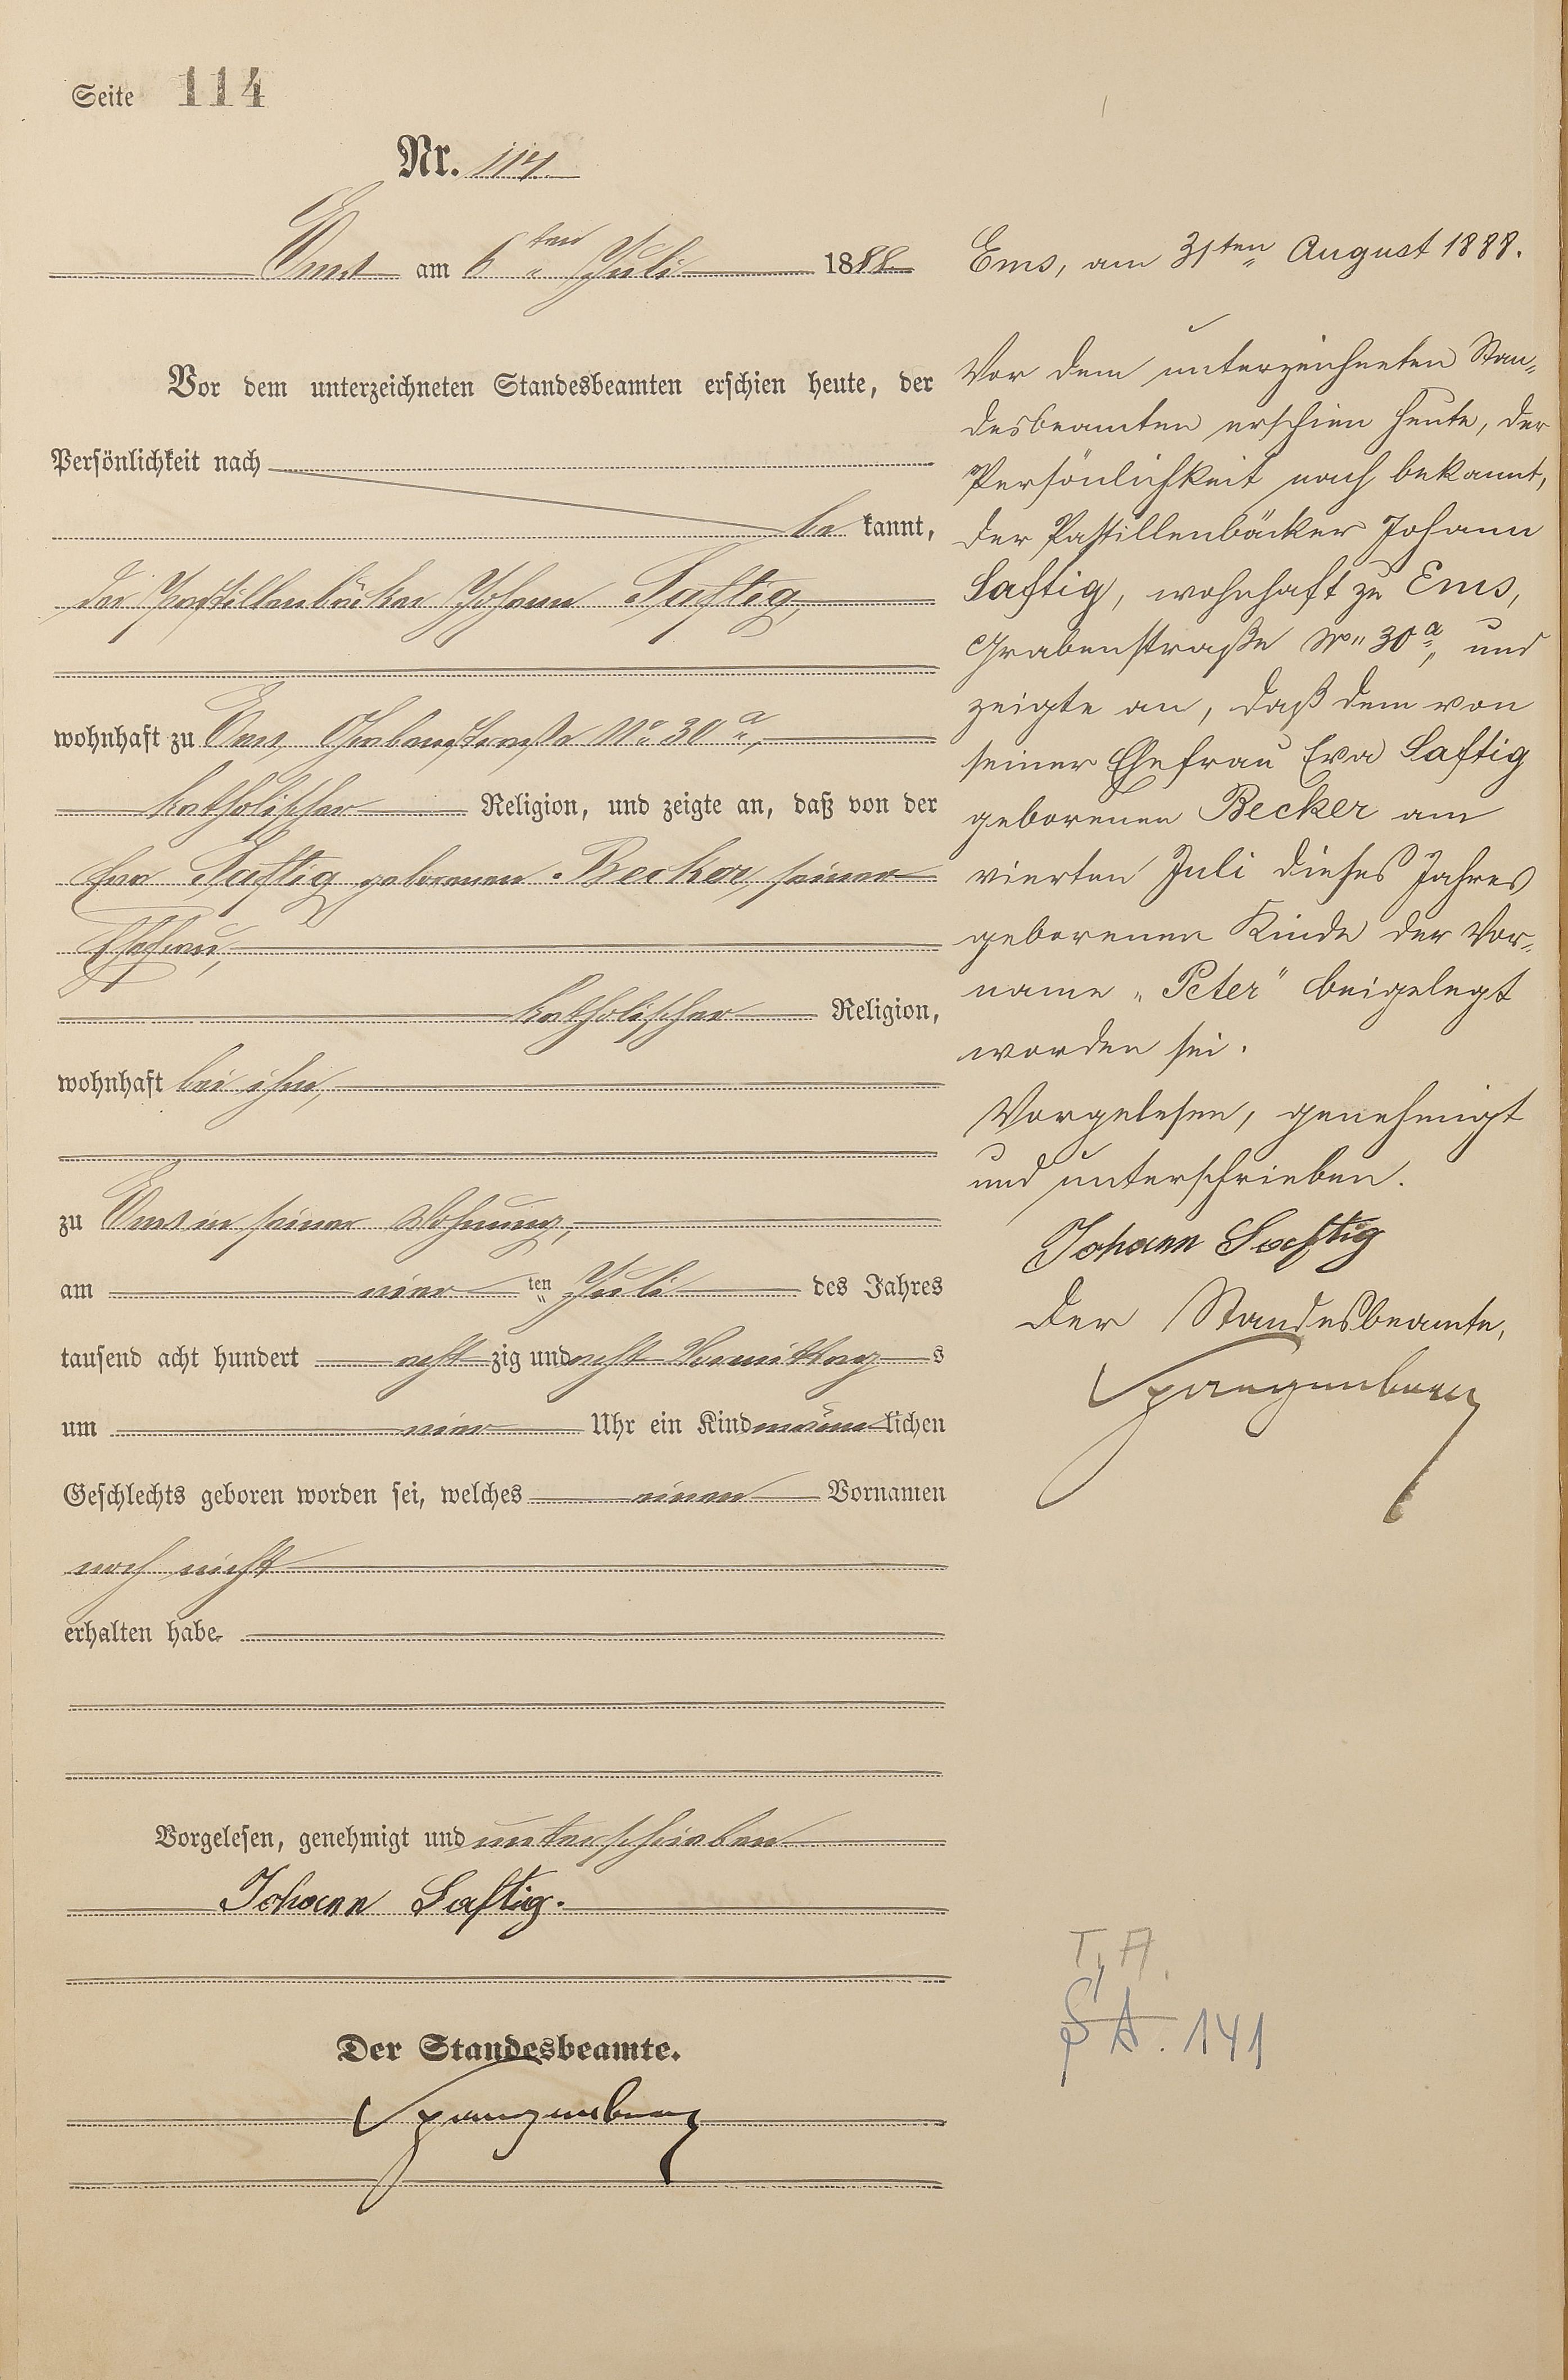 Seite 114
Nr. 114.
Ems am 6ten Juli 1888.
Vor dem unterzeichneten Standesbeamten erschien heute, der
Persönlichkeit nach
be kannt,
der Pastillenbäcker Johann Saftig,
wohnhaft zu Ems, Grabenstraße No 30a,
katholischer Religion, und zeigte an, daß von der
Eva Saftig geborenen Becker, seiner
Ehefrau,
katholischer Religion,
wohnhaft bei ihm,
zu Ems in seiner Wohnung,
am vier ten Juli des Jahres
tausend acht hundert acht zig und acht Vormittag s
um vier Uhr ein Kind männ lichen
Geschlechts geboren worden sei, welches einen Vornamen
noch nicht
erhalten habe.
Vorgelesen, genehmigt und unterschrieben
Johann Saftig.
Der Standesbeamte.
Spangenberg
Ems, am 31ten August 1888.
Vor dem unterzeichneten Stan-
desbeamten erschien heute, der
Persönlichkeit nach bekannt,
der Pastillenbäcker Johann
Saftig, wohnhaft zu Ems,
Grabenstraße No 30a, und
zeigte an, daß dem von
seiner Ehefrau Eva Saftig
geborenen Becker am
vierten Juli dieses Jahres
geborenen Kinde der Vor-
name „Peter" beigelegt
worden sei.
Vorgelesen, genehmigt
und unterschrieben.
Johann Saftig
Der Standesbeamte,
Spangenberg
T. A.
St A. 141